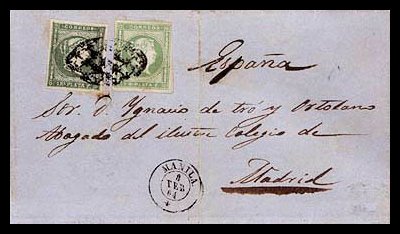 CORREOS CORREOS
España
Sor. D. Ygnacio de tró y Ortolano
Abogado del ilustre Colegio de
Madrid
MANILA
8
FEB
64